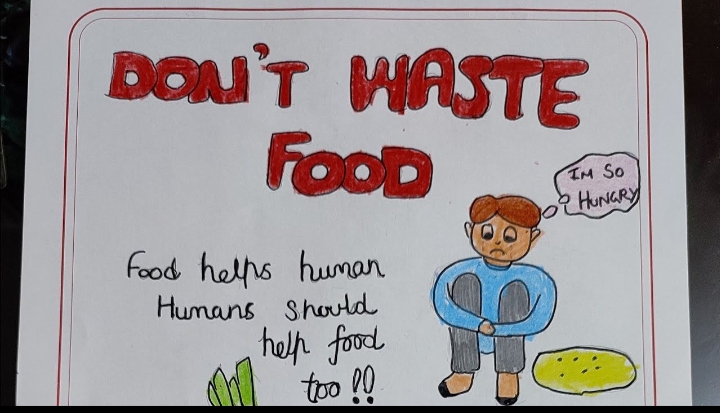 DON'T WASTE
FOOD
IM SO
HUNGRY
Food helps human
Humans should
help food
too !!